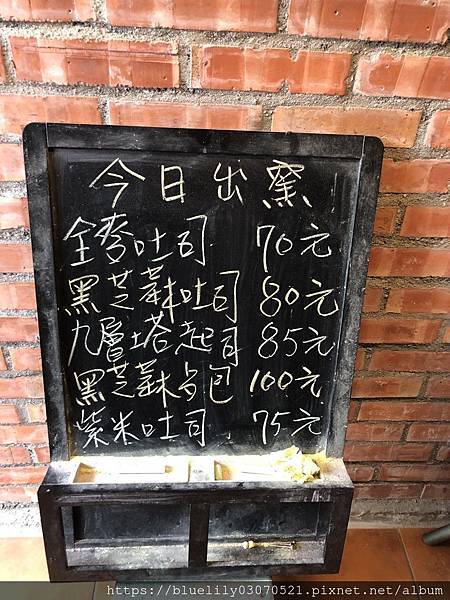 今日出窯
全麥吐司 70元
黑芝蔴吐司 80元
九層塔起司 85元
黑芝蔴卜包 100元
紫米吐司 75元
https://bluelily03070521.pixnet.net/album